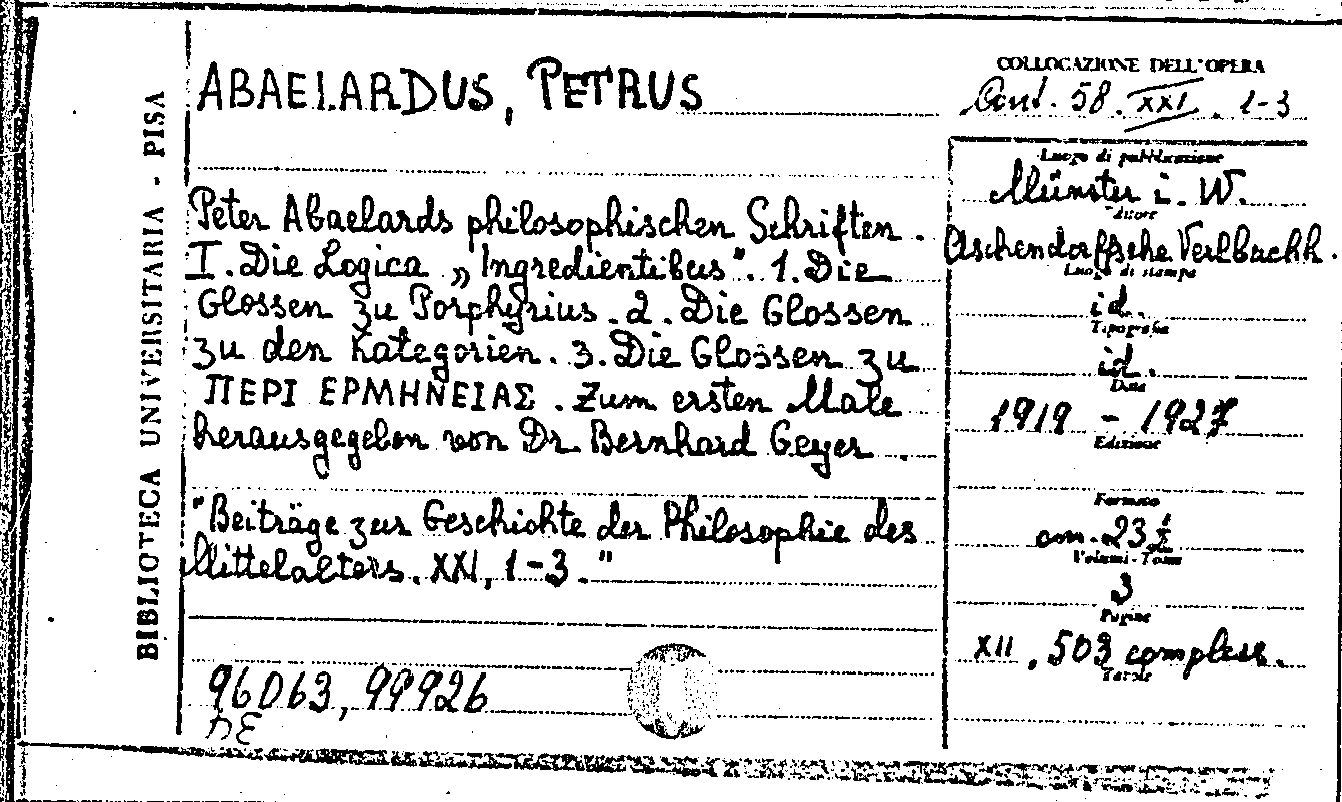 BIBLIOTECA UNIVERSITARIA - PISA
ABAELARDUS, PETRUS
Peter Abaelards philosophischen Schriften.
I. Die Logica „Ingredientibus". 1. Die
Glossen zu Porphyrius. 2. Die Glossen
zu den Kategorien. 3. Die Glossen zu
ΠΕΡΙ ΕΡΜΗΝΕΙΑΣ. Zum ersten Male
herausgegeben von Dr. Bernhard Geyer.
"Beiträge zur Geschichte der Philosophie des
Mittelalters. XXI, 1-3."
96063, 99926
DE
COLLOCAZIONE DELL'OPERA
Cont. 58. XXI. 1-3
Luogo di pubblicazione
Münster i. W.
Editore
Aschendorffsche Verlbuchh.
Luogo di stampa
id.
Tipografia
id.
Data
1919 - 1927
Edizione
Formato
cm. 23½
Volumi-Tomi
3
Pagine
XII, 503 compless.
Tavole